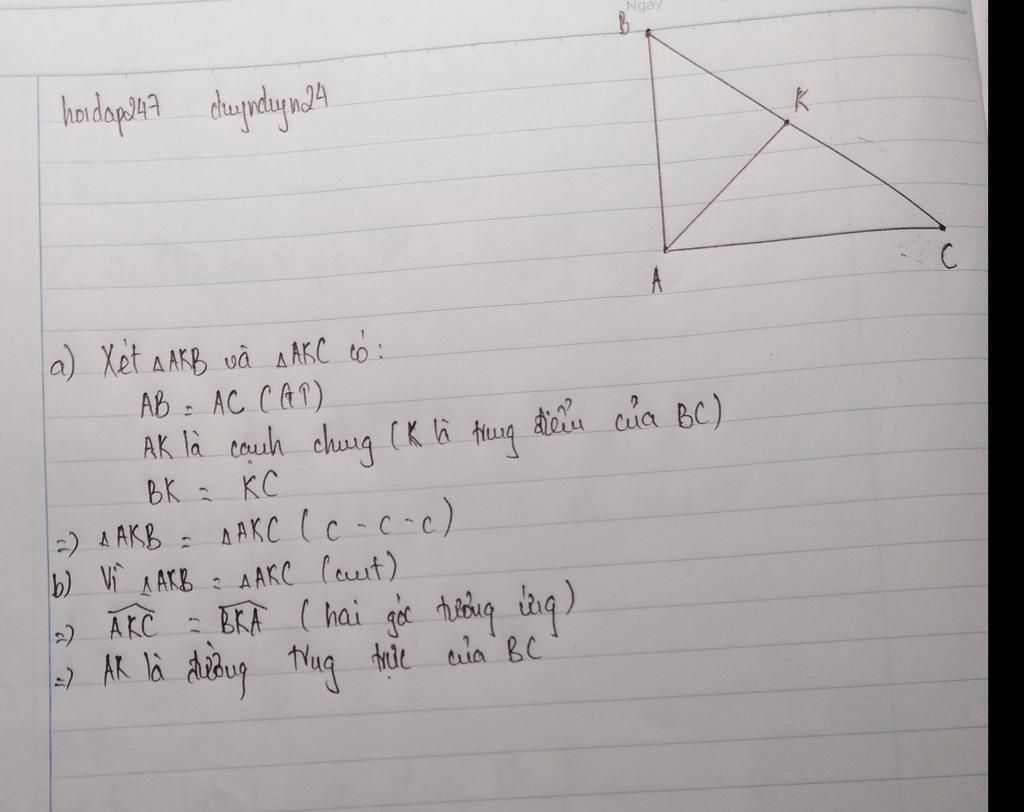 Ngày
B
hoidap247 duynduyn24
K
C
A
a) Xét △AKB và △AKC có:
AB = AC (GT)
AK là cạnh chung (K là trung điểm của BC)
BK = KC
=) △AKB = △AKC (c - c - c)
b) Vì △AKB = △AKC (cmt)
=) AKC = BKA (hai góc tương ứng)
=) AK là đường trug trực của BC